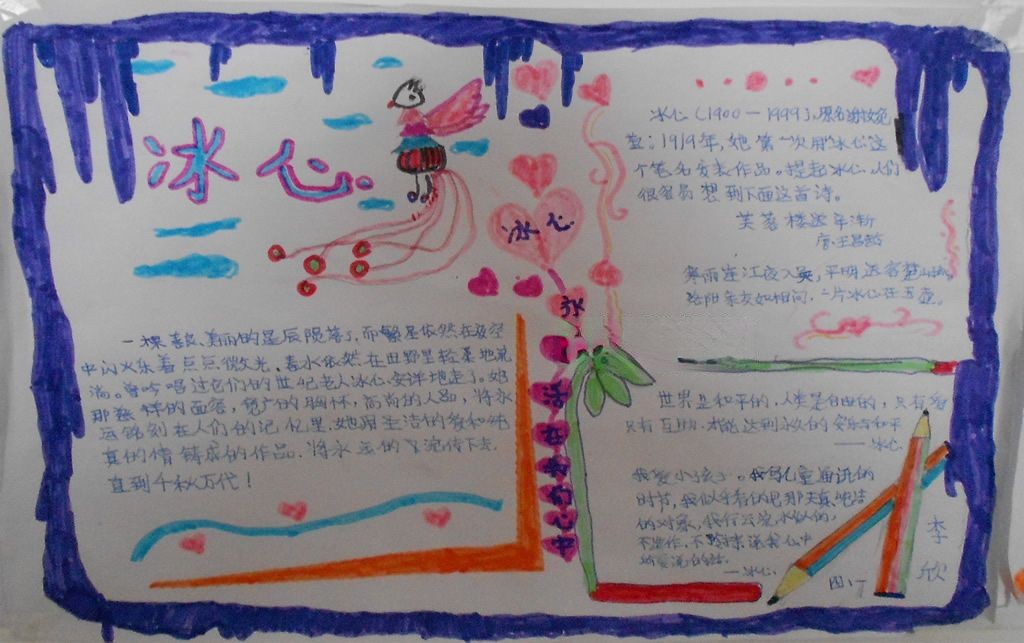 冰心
冰心
一颗美丽的星辰陨落了,而繁星依然在夜空
中闪烁着点点微光,春水依然在田野里轻柔地流
淌。曾吟唱过它们的世纪老人冰心安详地走了。她
那慈祥的面容,宽广的胸怀,高尚的人品,将永
远铭刻在人们的记忆里,她用圣洁的爱和纯
真的情铸成的作品,将永远的流传下去,
直到千秋万代!
冰心(1900—1999),原名谢婉莹
1919年,她第一次用冰心这
个笔名发表作品。提起冰心,人们
很容易想到下面这首诗。
芙蓉楼送辛渐
唐·王昌龄
寒雨连江夜入吴,平明送客楚山孤。
洛阳亲友如相问,一片冰心在玉壶。
世界是和平的,人类是自由的,只有
只有互助,才能达到永久的安乐与和平
——冰心
我爱小孩子。我写儿童通讯的
时节,我似乎看得见那天真纯洁
的对象,我行云流水似的,
不造作,不
——冰心
四、丁
李
欣